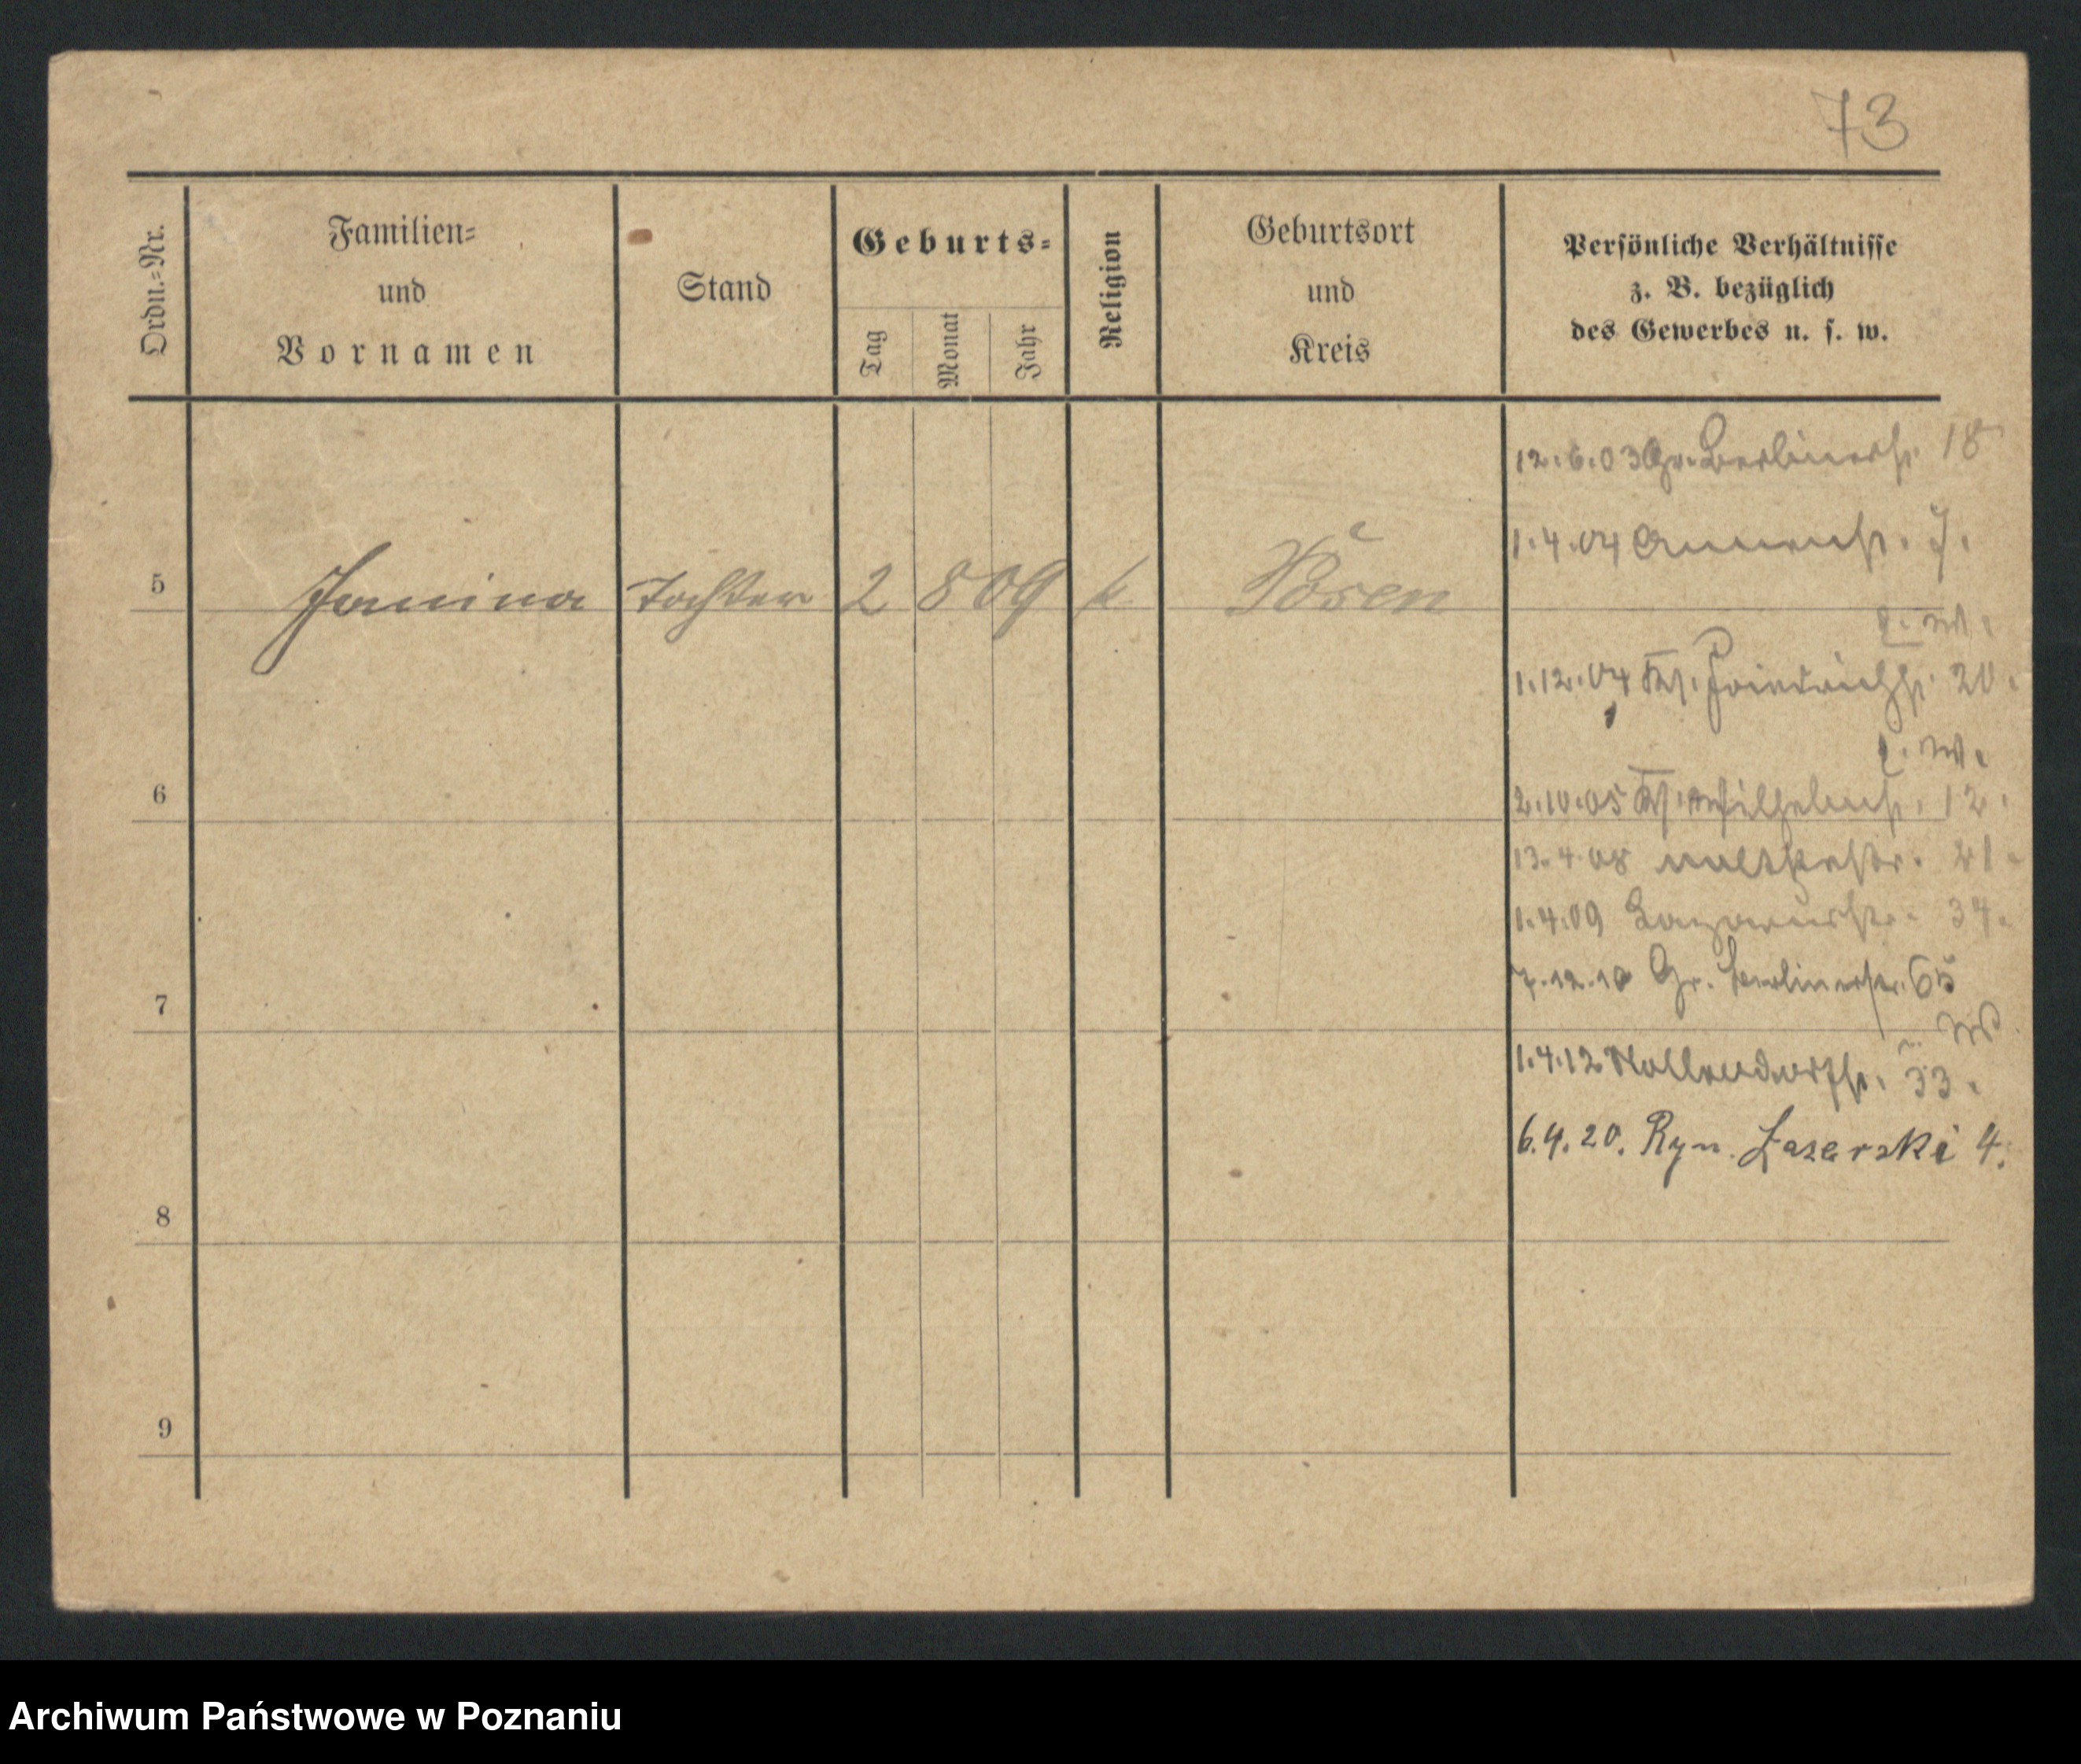 73
Ordn.-Nr.
Familien-
und
Vornamen
Stand
Geburts-
Tag
Monat
Jahr
Religion
Geburtsort
und
Kreis
Persönliche Verhältnisse
z. B. bezüglich
des Gewerbes u. s. w.
12.6.03 Gr. Berlinerstr. 18
1.4.04 Annenstr. 7.
5 Janina Tochter 2 8 09 k Posen
b. W.
1.12.04 Kl. Friedrichstr. 20.
b. W.
6
2.10.05 Wilhelmstr. 12.
13.4.08 21.
1.4.09 Lazarusstr. 34.
7.12.10 Gr. Berlinerstr. 65
7
1.4.12 Nollendorfstr. 33.
6.4.20. Ryn. Łazarski 4.
8
9
Archiwum Państwowe w Poznaniu